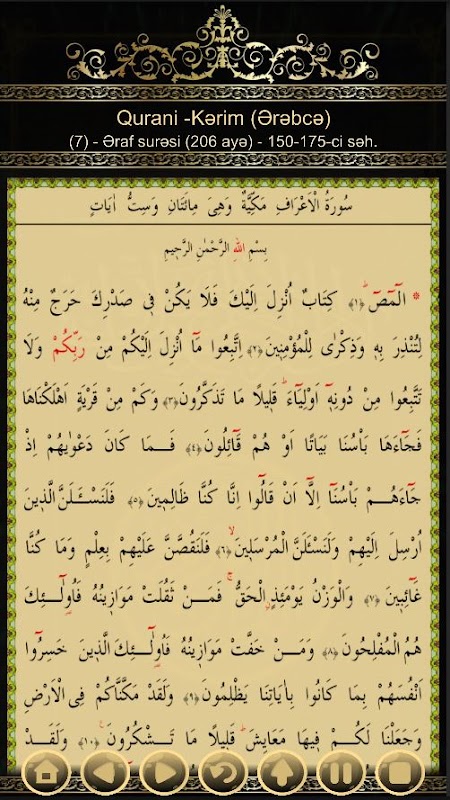 Qurani -Kərim (Ərəbcə)
(7) - Əraf surəsi (206 ayə) - 150-175-ci səh.
سُورَةُ الْاَعْرَافِ مَكِّيَّةٌ وَهِىَ مِائَتَانِ وَسِتُّ اٰيَاتٍ
بِسْمِ اللهِ الرَّحْمٰنِ الرَّحِيمِ
* الٓمٓصٓ ﴿١﴾ كِتَابٌ اُنْزِلَ اِلَيْكَ فَلَا يَكُنْ فِى صَدْرِكَ حَرَجٌ مِنْهُ
لِتُنْذِرَ بِهٖ وَذِكْرٰى لِلْمُؤْمِنِينَ ﴿٢﴾ اِتَّبِعُوا مَٓا اُنْزِلَ اِلَيْكُمْ مِنْ رَبِّكُمْ وَلَا
تَتَّبِعُوا مِنْ دُونِهٖٓ اَوْلِيَٓاءَ قَلِيلًا مَا تَذَكَّرُونَ ﴿٣﴾ وَكَمْ مِنْ قَرْيَةٍ اَهْلَكْنَاهَا
فَجَٓاءَهَا بَاْسُنَا بَيَاتًا اَوْ هُمْ قَٓائِلُونَ ﴿٤﴾ فَمَا كَانَ دَعْوٰيهُمْ اِذْ
جَٓاءَهُمْ بَاْسُنَٓا اِلَّٓا اَنْ قَالُٓوا اِنَّا كُنَّا ظَالِمِينَ ﴿٥﴾ فَلَنَسْـَٔلَنَّ الَّذِينَ
اُرْسِلَ اِلَيْهِمْ وَلَنَسْـَٔلَنَّ الْمُرْسَلِينَ ﴿٦﴾ فَلَنَقُصَّنَّ عَلَيْهِمْ بِعِلْمٍ وَمَا كُنَّا
غَٓائِبِينَ ﴿٧﴾ وَالْوَزْنُ يَوْمَئِذٍ الْحَقُّ فَمَنْ ثَقُلَتْ مَوَازِينُهُ فَاُولٰٓئِكَ
هُمُ الْمُفْلِحُونَ ﴿٨﴾ وَمَنْ خَفَّتْ مَوَازِينُهُ فَاُولٰٓئِكَ الَّذِينَ خَسِرُٓوا
اَنْفُسَهُمْ بِمَا كَانُوا بِاٰيَاتِنَا يَظْلِمُونَ ﴿٩﴾ وَلَقَدْ مَكَّنَّاكُمْ فِى الْاَرْضِ
وَجَعَلْنَا لَكُمْ فِيهَا مَعَايِشَ قَلِيلًا مَا تَشْكُرُونَ ﴿١٠﴾ وَلَقَدْ